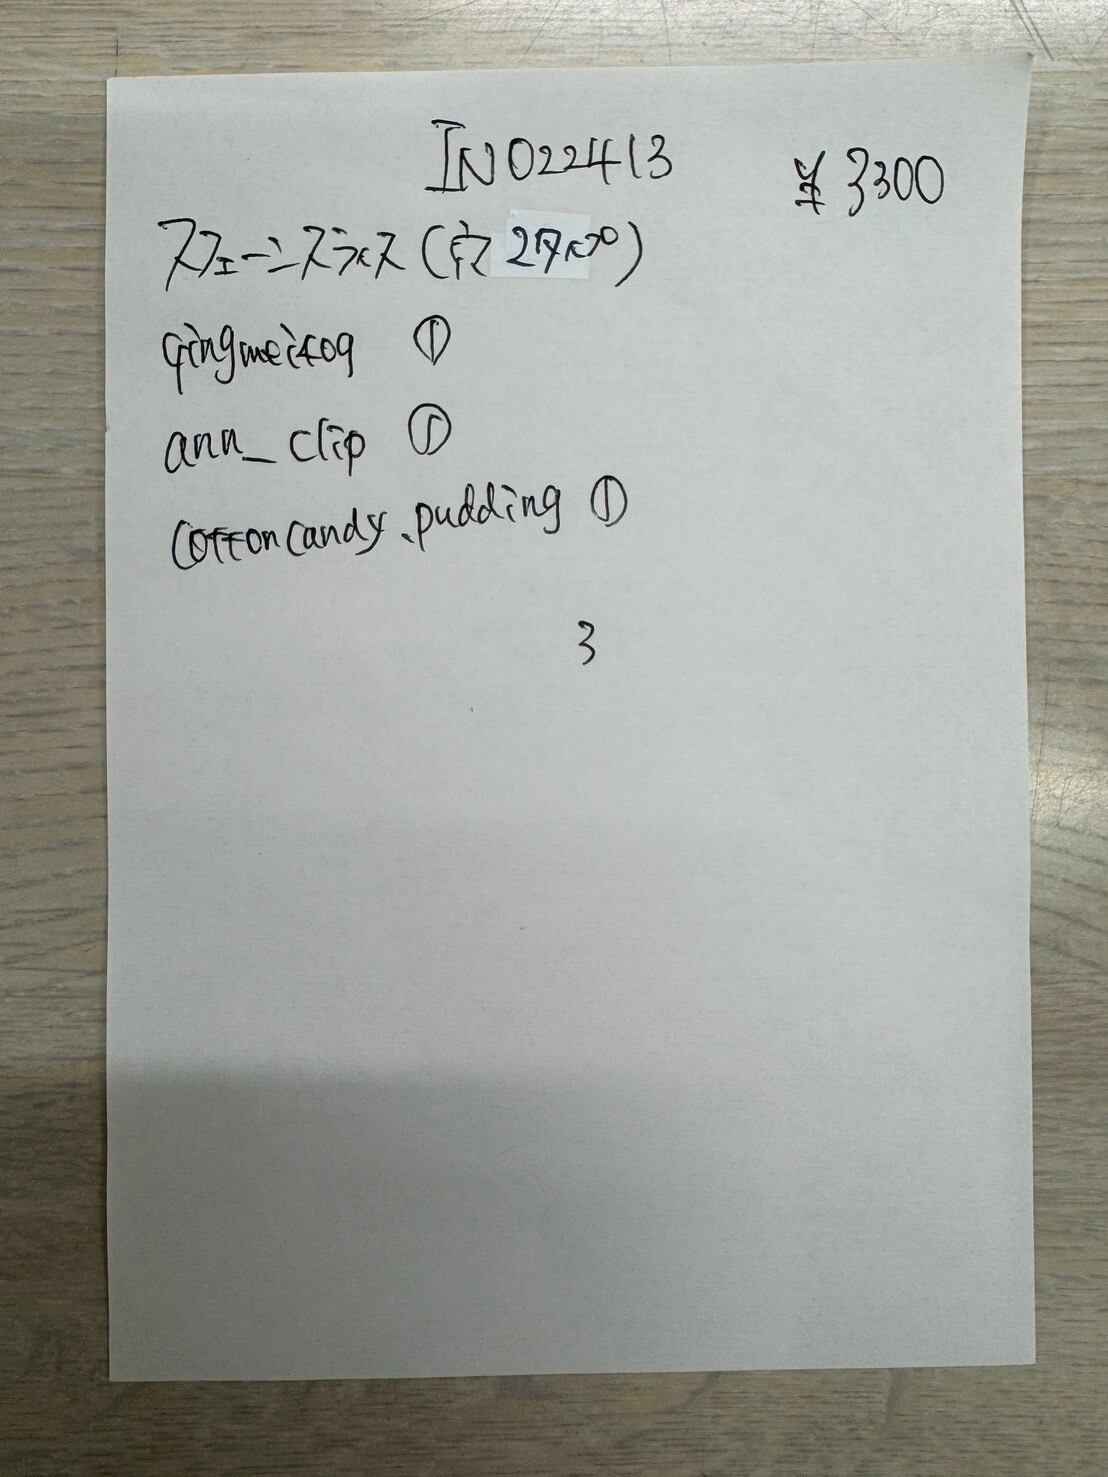 IN022413 ¥3300
スフェーンスライス(穴
qingmei409 ①
ann_clip ①
cottoncandy.pudding ①
3